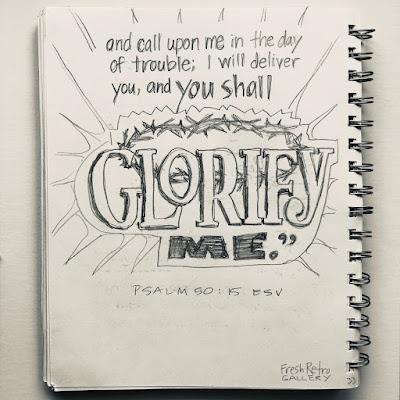 and call upon me in the day
of trouble; I will deliver
you, and you shall
GLORIFY
ME.”
PSALM 50:15 ESV
Fresh Retro
GALLERY